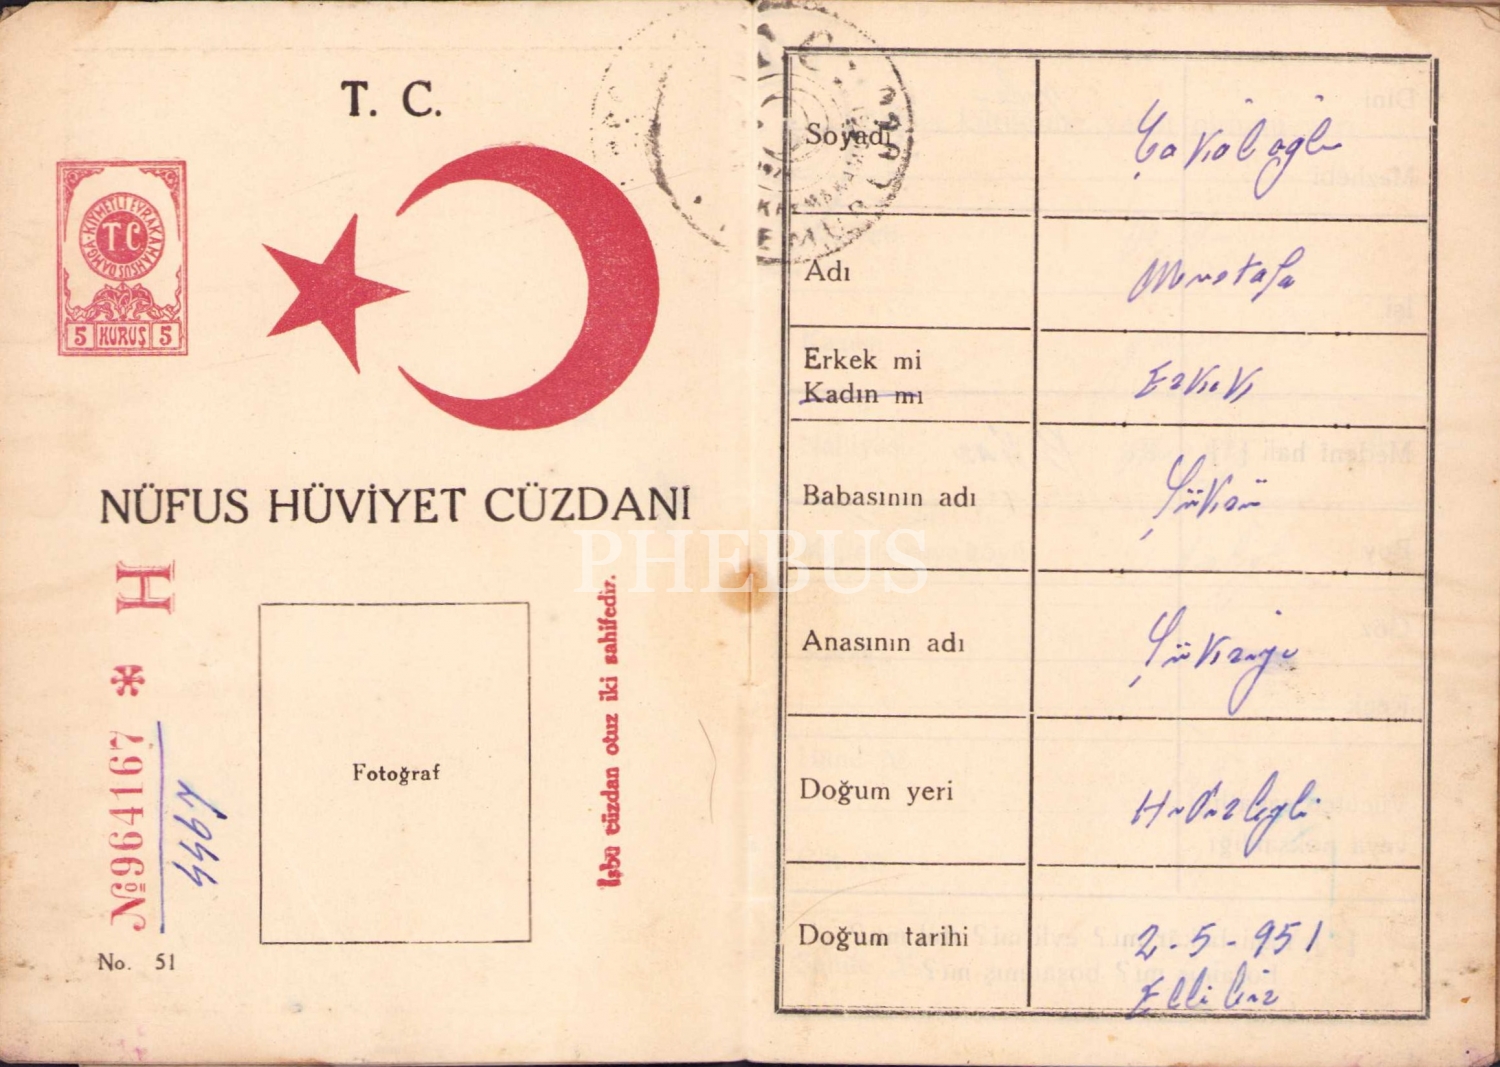 T. C.
KIYMETLİ EVRAKA MAHSUS DAMGA
T.C.
5 KURUŞ 5
NÜFUS HÜVİYET CÜZDANI
H
№ 964167
4467
Fotoğraf
İşbu cüzdan otuz iki sahifedir.
No. 51
PHEBUS
Soyadı
Adı Mustafa
Erkek mi Erkek
Kadın mı
Babasının adı Şükrü
Anasının adı Şükriye
Doğum yeri
Doğum tarihi 2-5-951
Elli bir